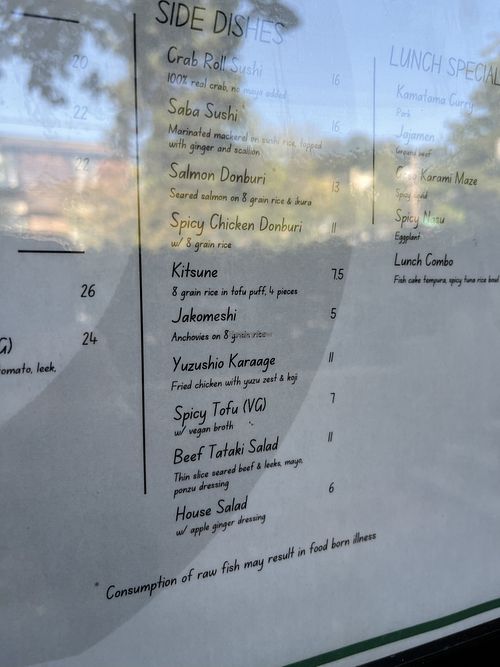 20
22
22
26
24
G)
omato, leek,
SIDE DISHES
Crab Roll Sushi 16
100% real crab, no mayo added
Saba Sushi 16
Marinated mackerel on sushi rice, topped
with ginger and scallion
Salmon Donburi 13
Seared salmon on 8 grain rice & ikura
Spicy Chicken Donburi 11
w/ 8 grain rice
Kitsune 7.5
8 grain rice in tofu puff, 4 pieces
Jakomeshi 5
Anchovies on 8 grain rice
Yuzushio Karaage 11
Fried chicken with yuzu zest & koji
Spicy Tofu (VG) 7
w/ vegan broth
Beef Tataki Salad 11
Thin slice seared beef & leeks, mayo,
ponzu dressing
House Salad 6
w/ apple ginger dressing
* Consumption of raw fish may result in food born illness
LUNCH SPECIAL
Kamatama Curry
Pork
Jajamen
Ground beef
Karami Maze
Spicy
Spicy Nasu
Eggplant
Lunch Combo
Fish cake tempura, spicy tuna rice bowl